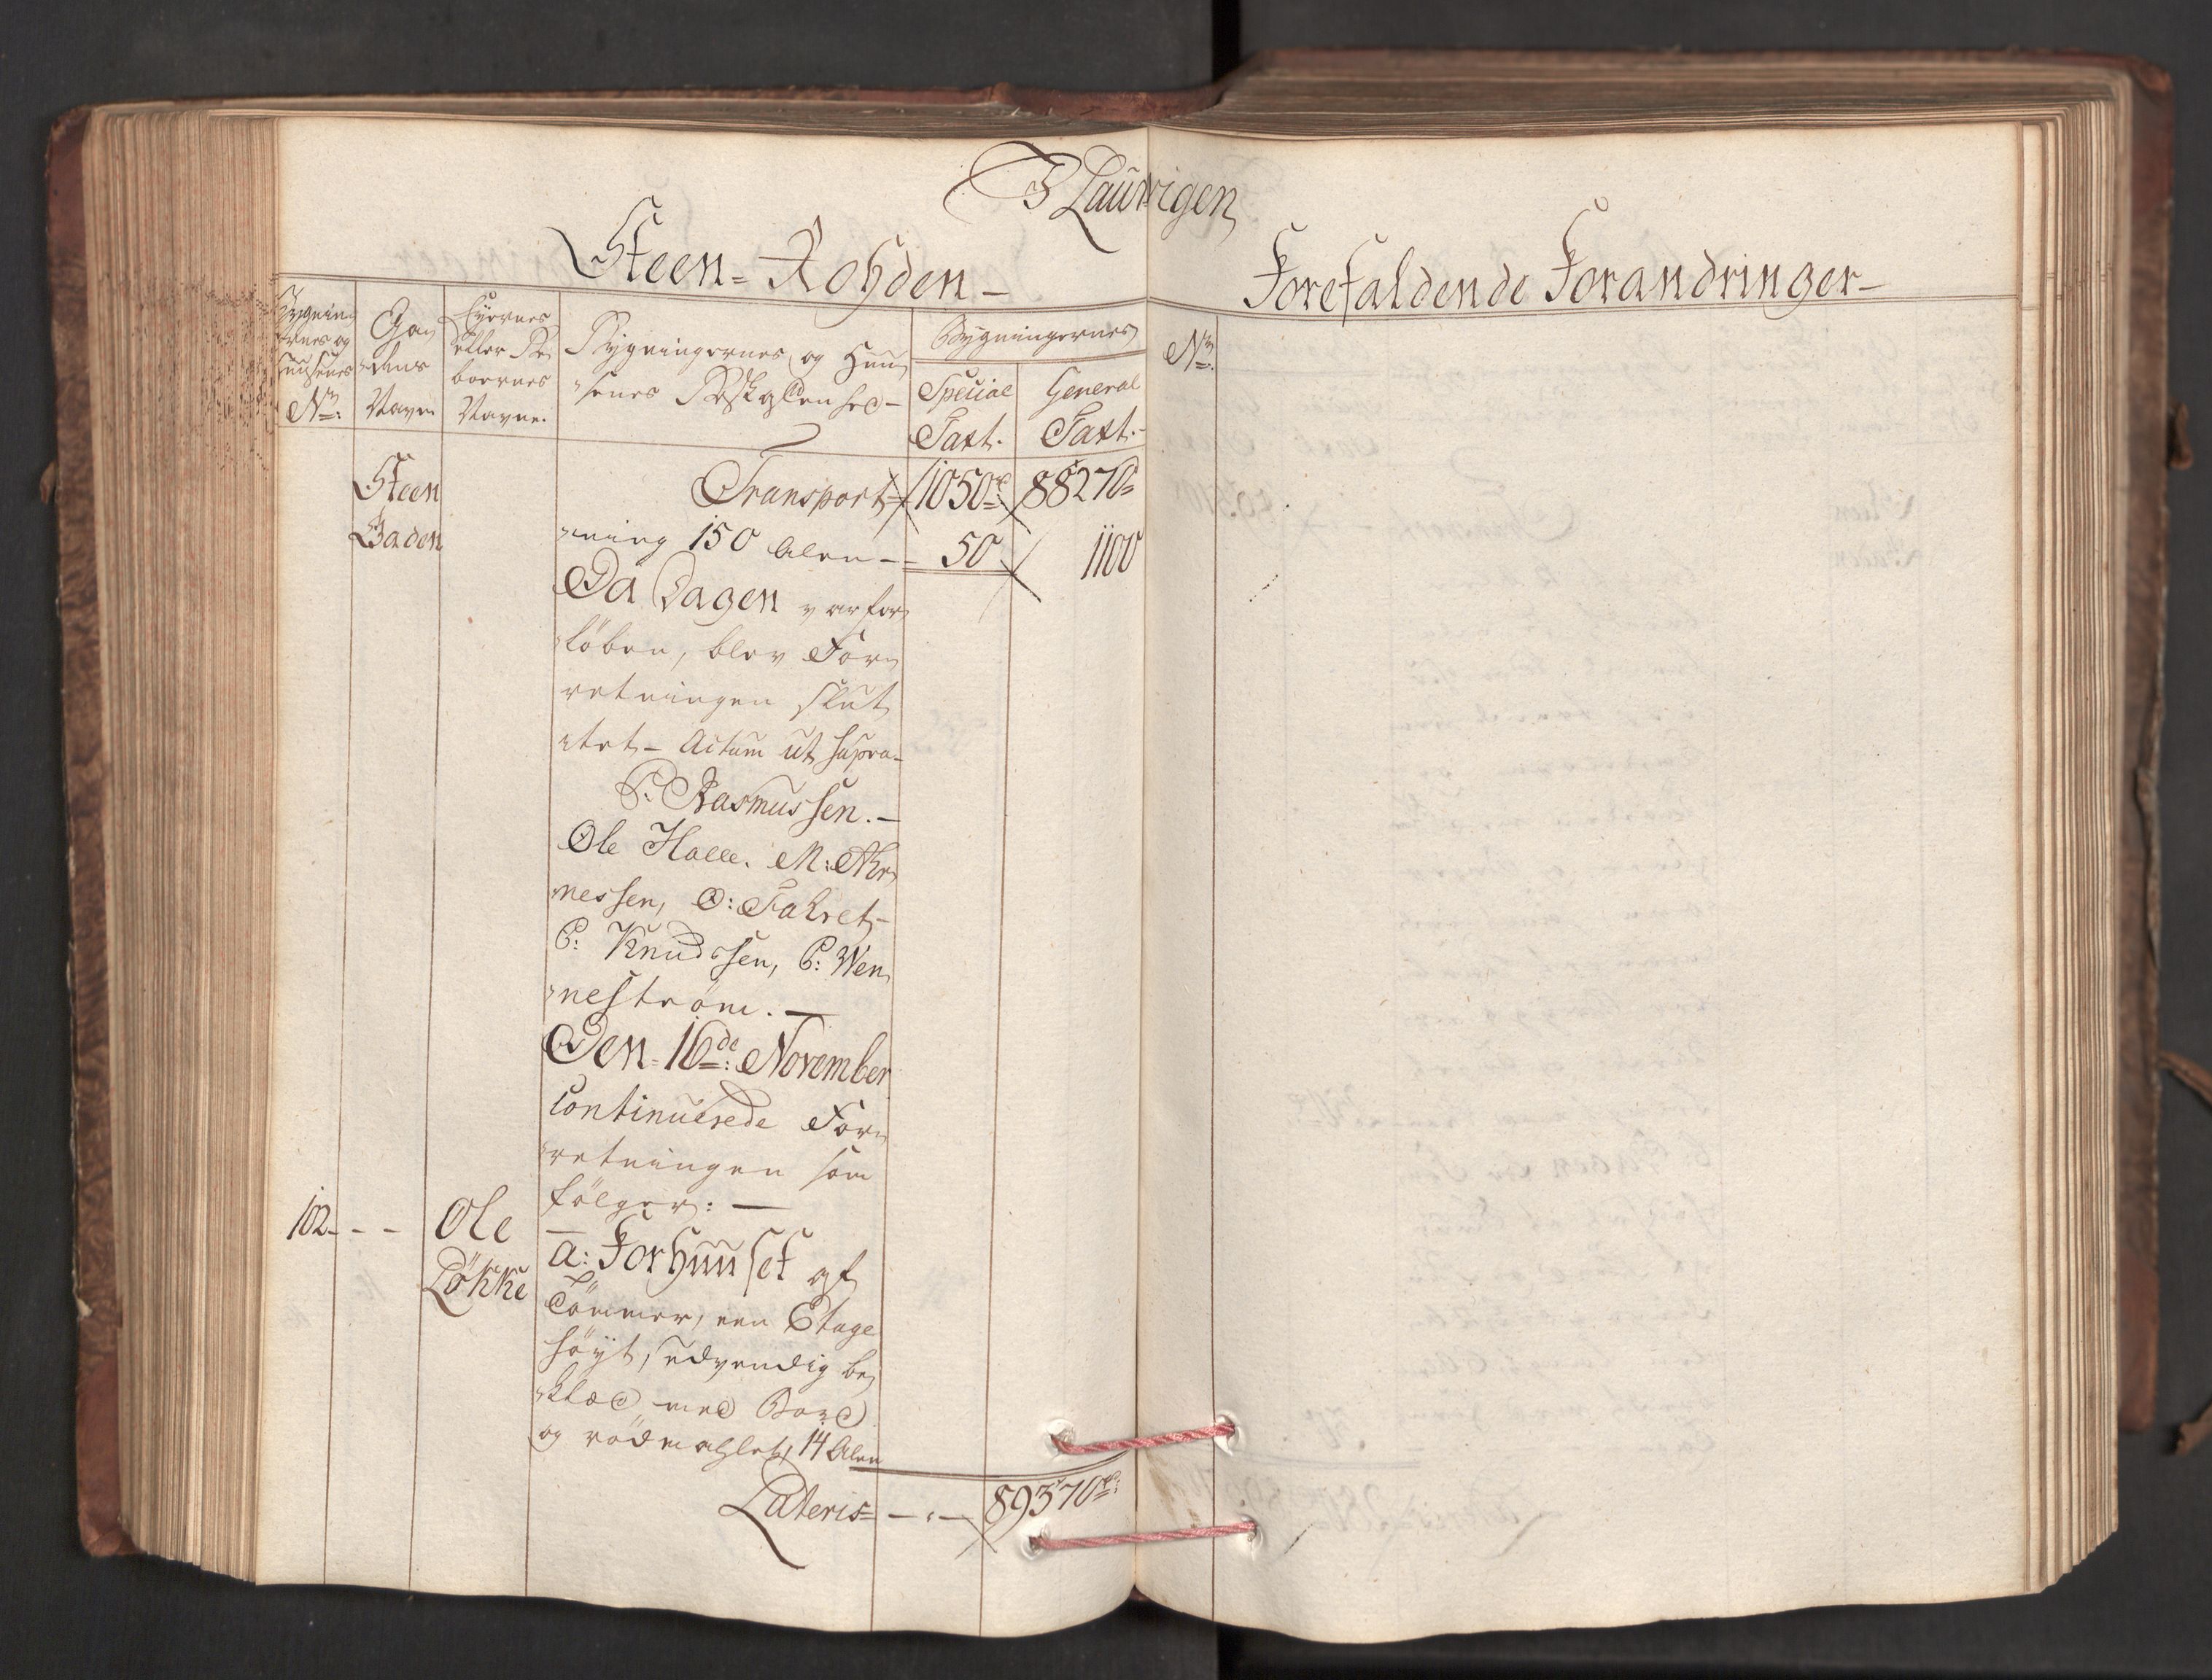 I Laurvigen
Steen-Rohden-
Forefaldende Forandringer-
Bygnin
gernes og
Huusenes
No:
Ga
dens
Navn
Eyernes
eller Be
boernes
Navne.
Bygningernes og Huu
senes Beskaffenhed-
Bygningernes
Special
Taxt.
General
Taxt.-
No:
Steen
Gaden
Transport 1050rd 88270
ning 150 Alen - 50 1100
Da Dagen var for
löben, blev For
retningen slut
tet- Actum ut supra-
P: Rasmussen.-
Ole Halle. M: Ahr
nessen, O: Fahret-
P: Knudssen, P: Wen
neström. -
Den 16de: November
Continuerede For
retningen som
fölger: -
102 - - Ole
Lökke
a: Forhuuset af
Tömmer, een Etage
höyt, udvendig be
klæd med Bord
og rödmahlet, 14 Alen
Lateris - - 89370rd: